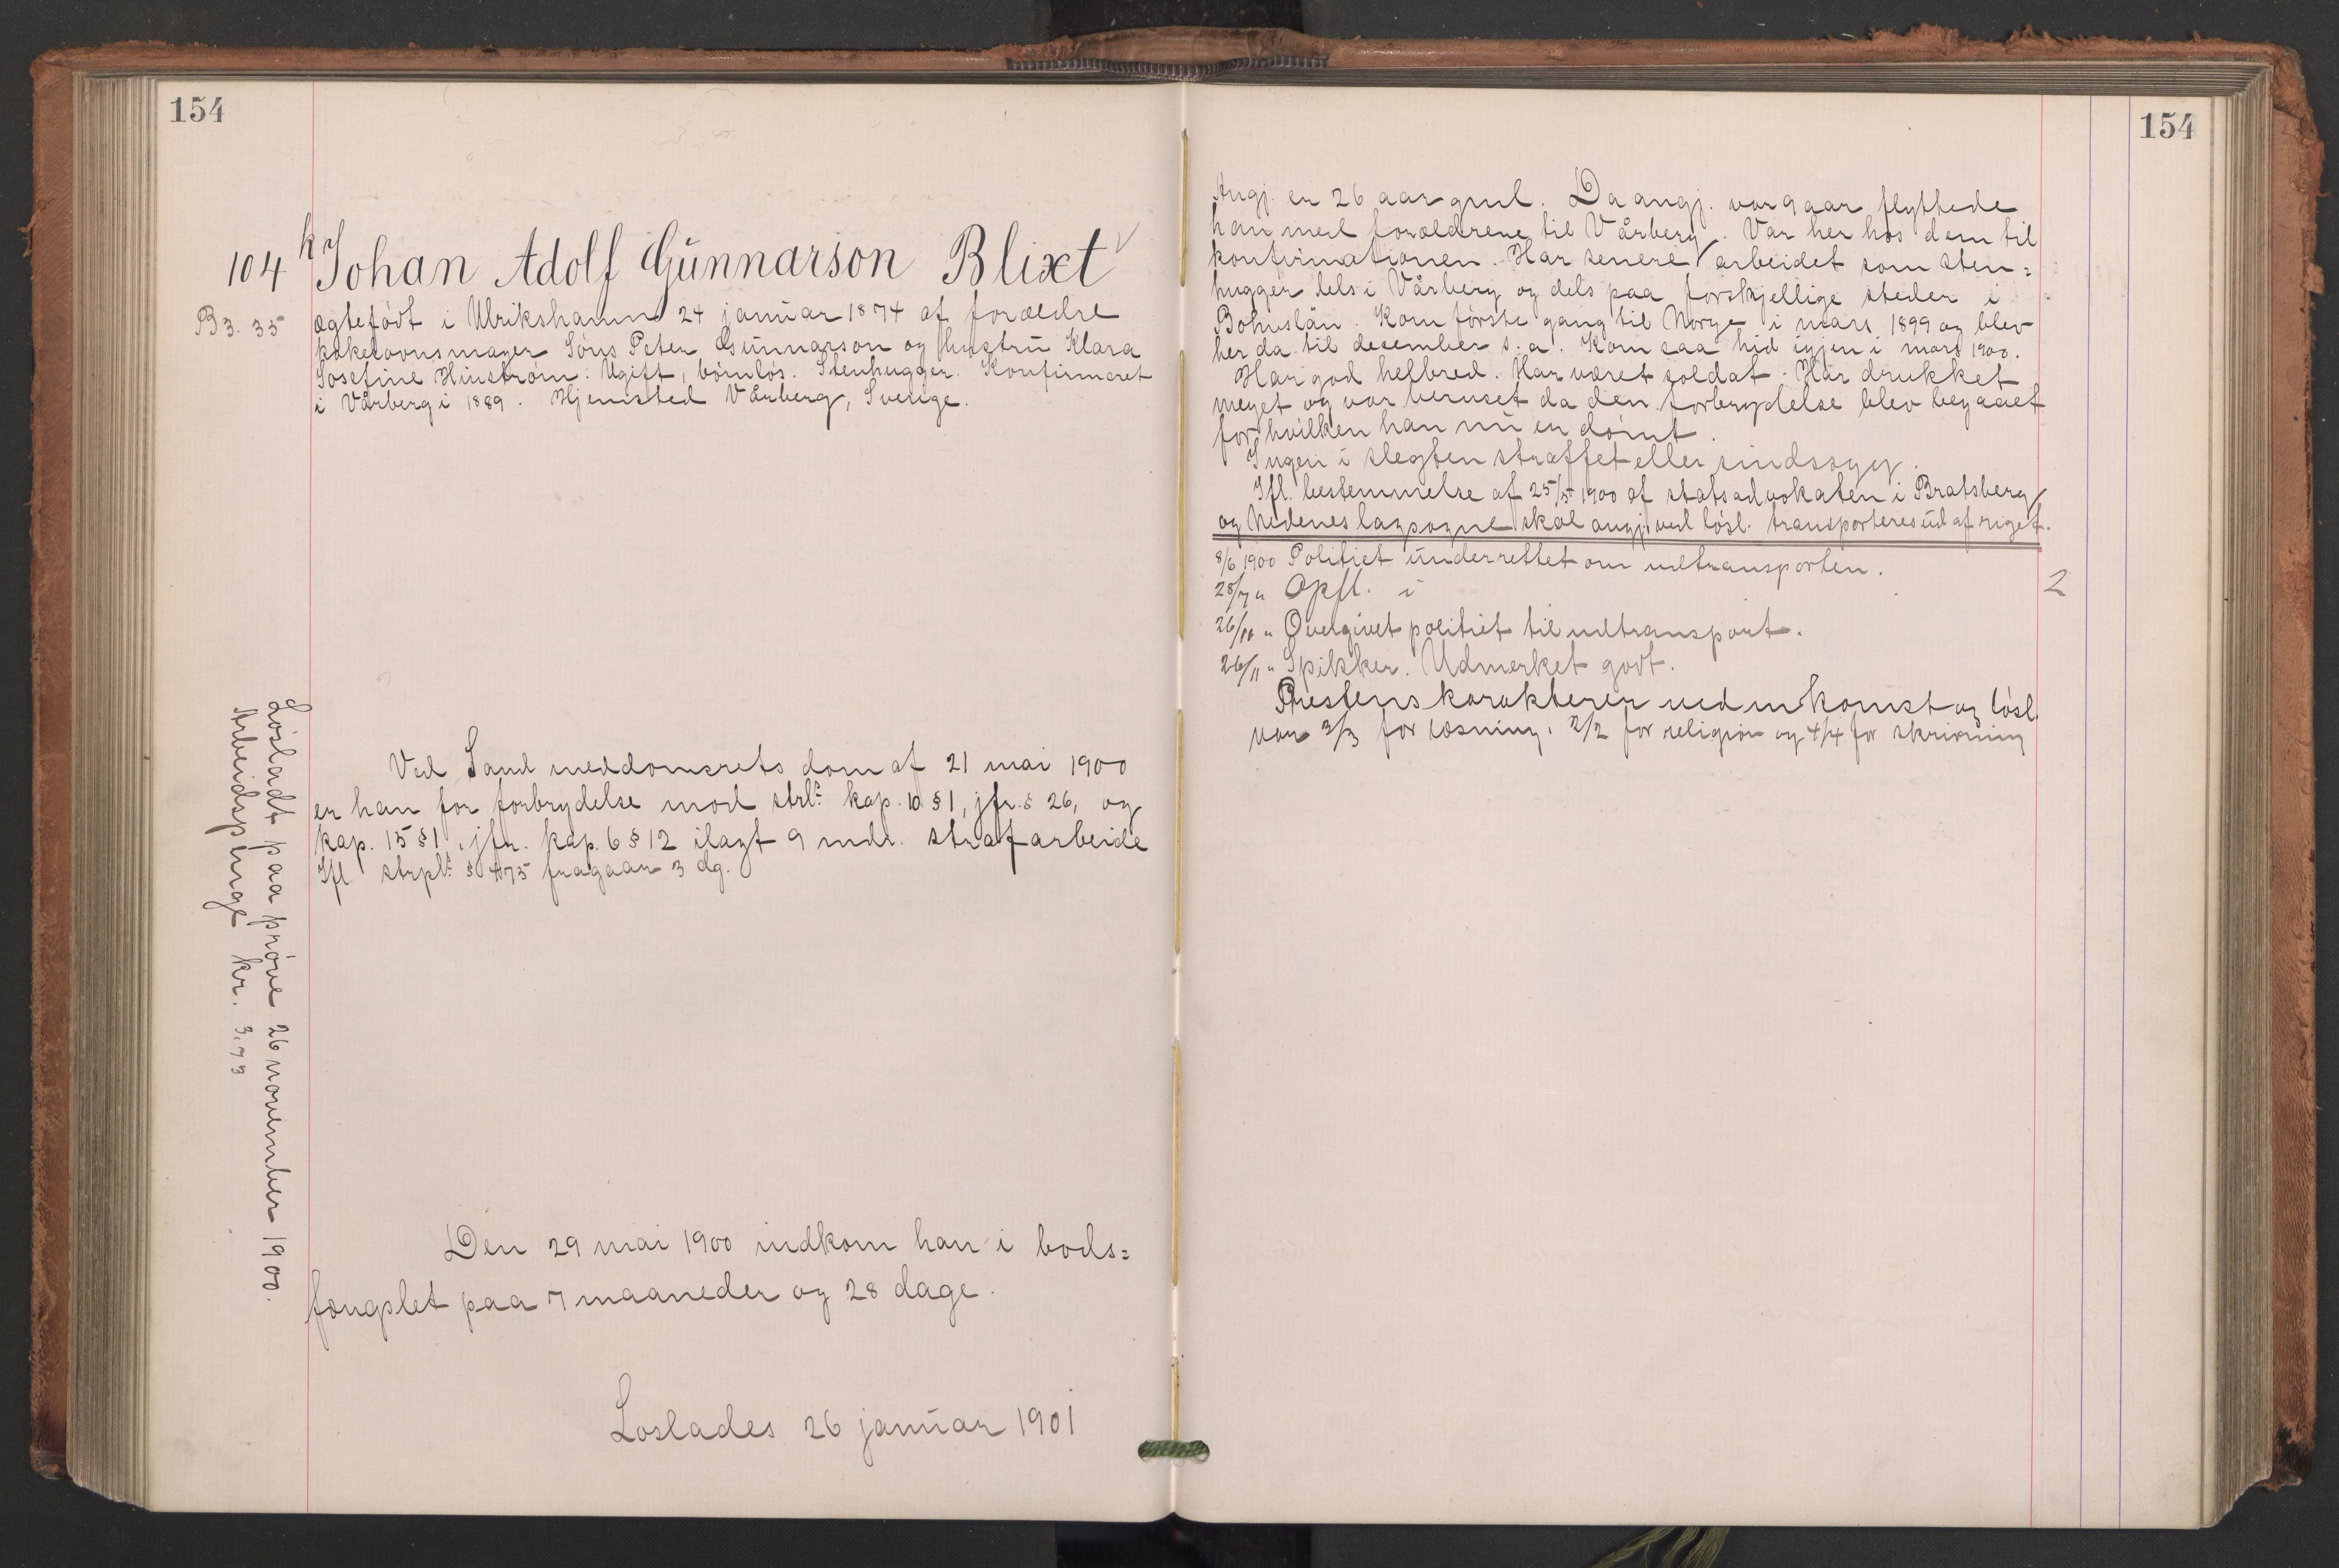 154
104 k Johan Adolf Gŭnnarson Blixt
B 3. 35
ægtefødt i Ulrikshamn 24 janŭar 1874 af forældre
kakelovnsmager Jöns Peter Gŭnnarson og hustrŭ Klara
Josefine Hinström. Ugift, børnløs. Stenhugger. Konfirmeret
i Vårberg i 1889. Hjemsted Vårberg, Sverige.
Ved Sand meddomsrets dom af 21 mai 1900
er han for forbrydelse mod strlv. kap. 10 § 1, jfr. § 26, og
kap. 15 § 1, jfr. kap. 6 § 12 ilagt 9 mdr. strafarbeide
Ifl. strplv. § 475 fragaar 3 dg.
Løsladt paa prøve 26 november 1900.
Arbeidsp nge kr. 3,73
Den 29 mai 1900 indkom han i bods=
fængslet paa 7 maaneder og 28 dage.
Løslades 26 janŭar 1901
154
Angj. er 26 aar gml. Da angj. var 9 aar flyttede
han med forældrene til Vårberg. Var her hos dem til
konfirmationen. Har senere arbeidet som sten=
hugger dels i Vårberg og dels paa forskjellige steder i
Bohuslän. Kom første gang til Norge i mars 1899 og blev
her da til desember s. a. Kom saa hid igjen i mars 1900.
Har god helbred. Har været soldat. Har drukket
meget og var beruset da den forbrydelse blev begaaet
for hvilken han nŭ er dømt.
Ingen i slegten straffet eller sindssyg.
Ifl. bestemmelse af 25/5 1900 af statsadvokaten i Bratsberg
og Nedenes lagsogne skal angj. ved løsl. transporteres ud af riget.
8/6 1900 Politiet ŭnderrettet om udtransporten.
28/7 " Opfl. i 2
26/11 " Overgivet politiet til udtransport.
26/11 " Spikker. Udmerket godt.
Prestens karakterer ved indkomst og løsl.
var 3/3 for læsning, 2/2 for religion og 4/4 for skrivning